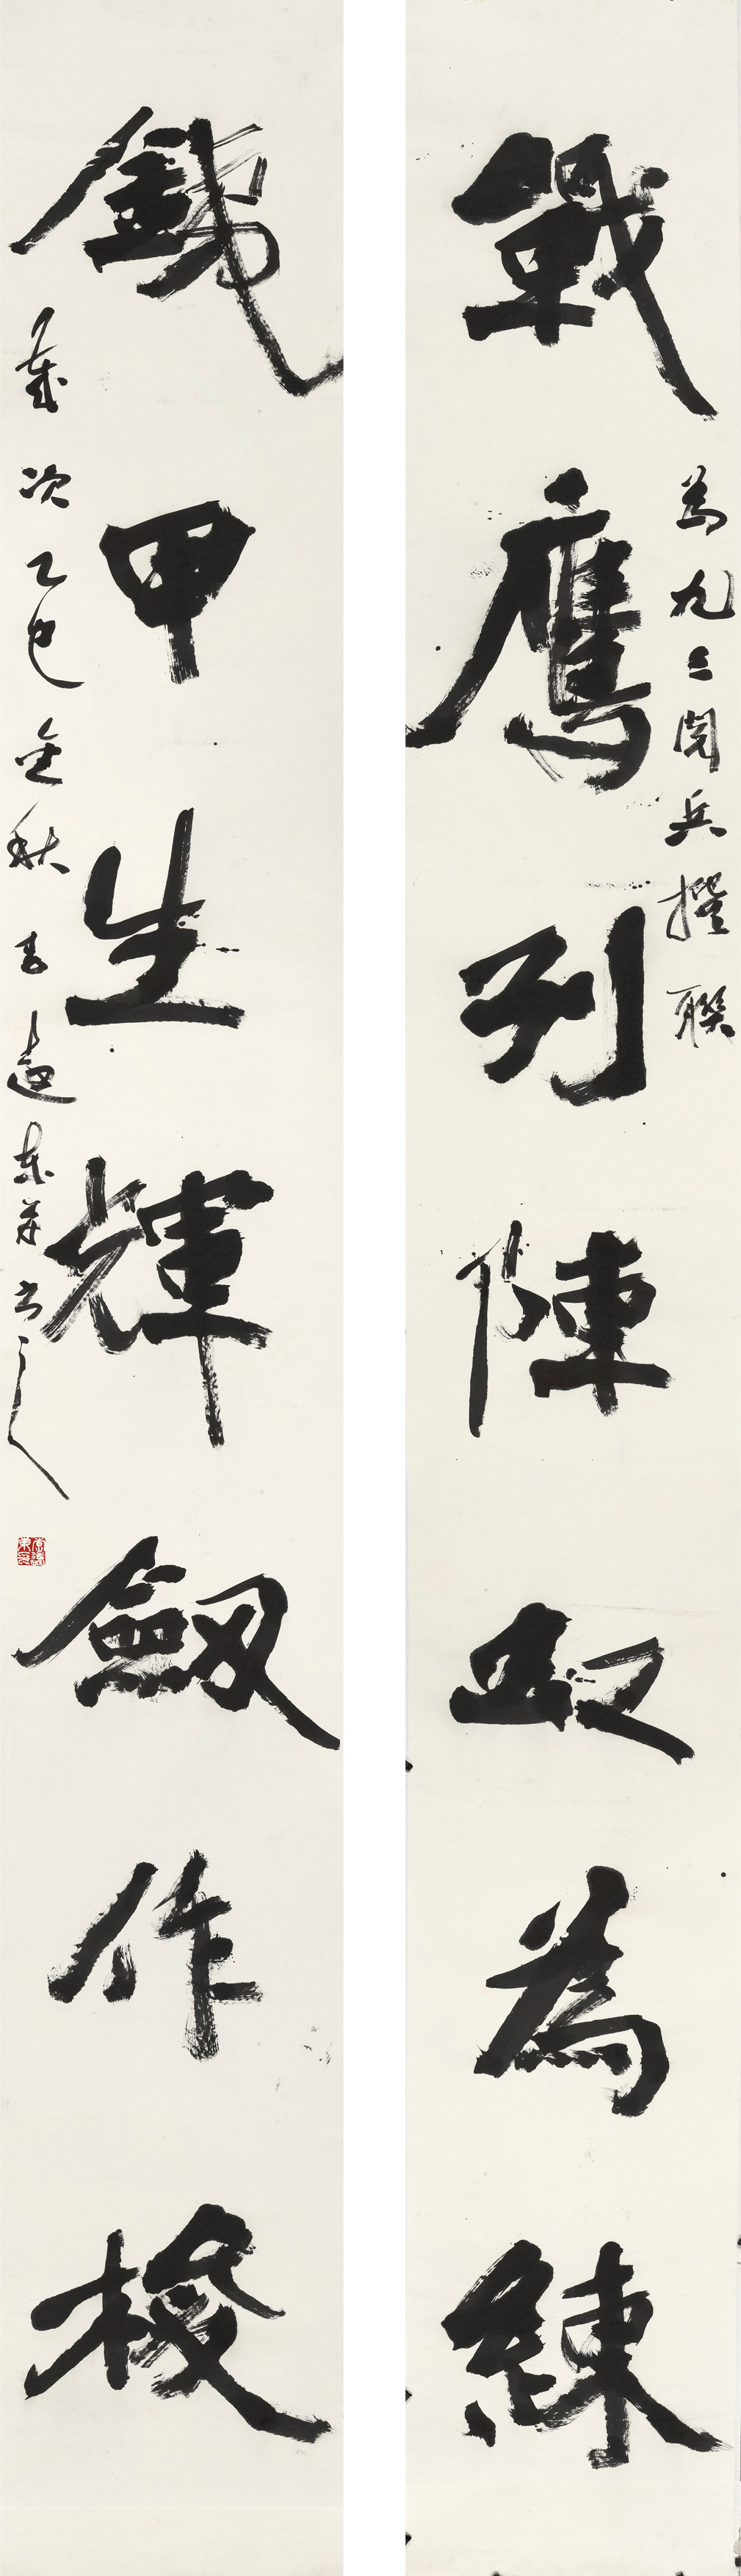 為九三閱兵撰聯
戰鷹列陣為練
鐵甲生輝劒作梭
歲次乙巳金秋李遠東并書之